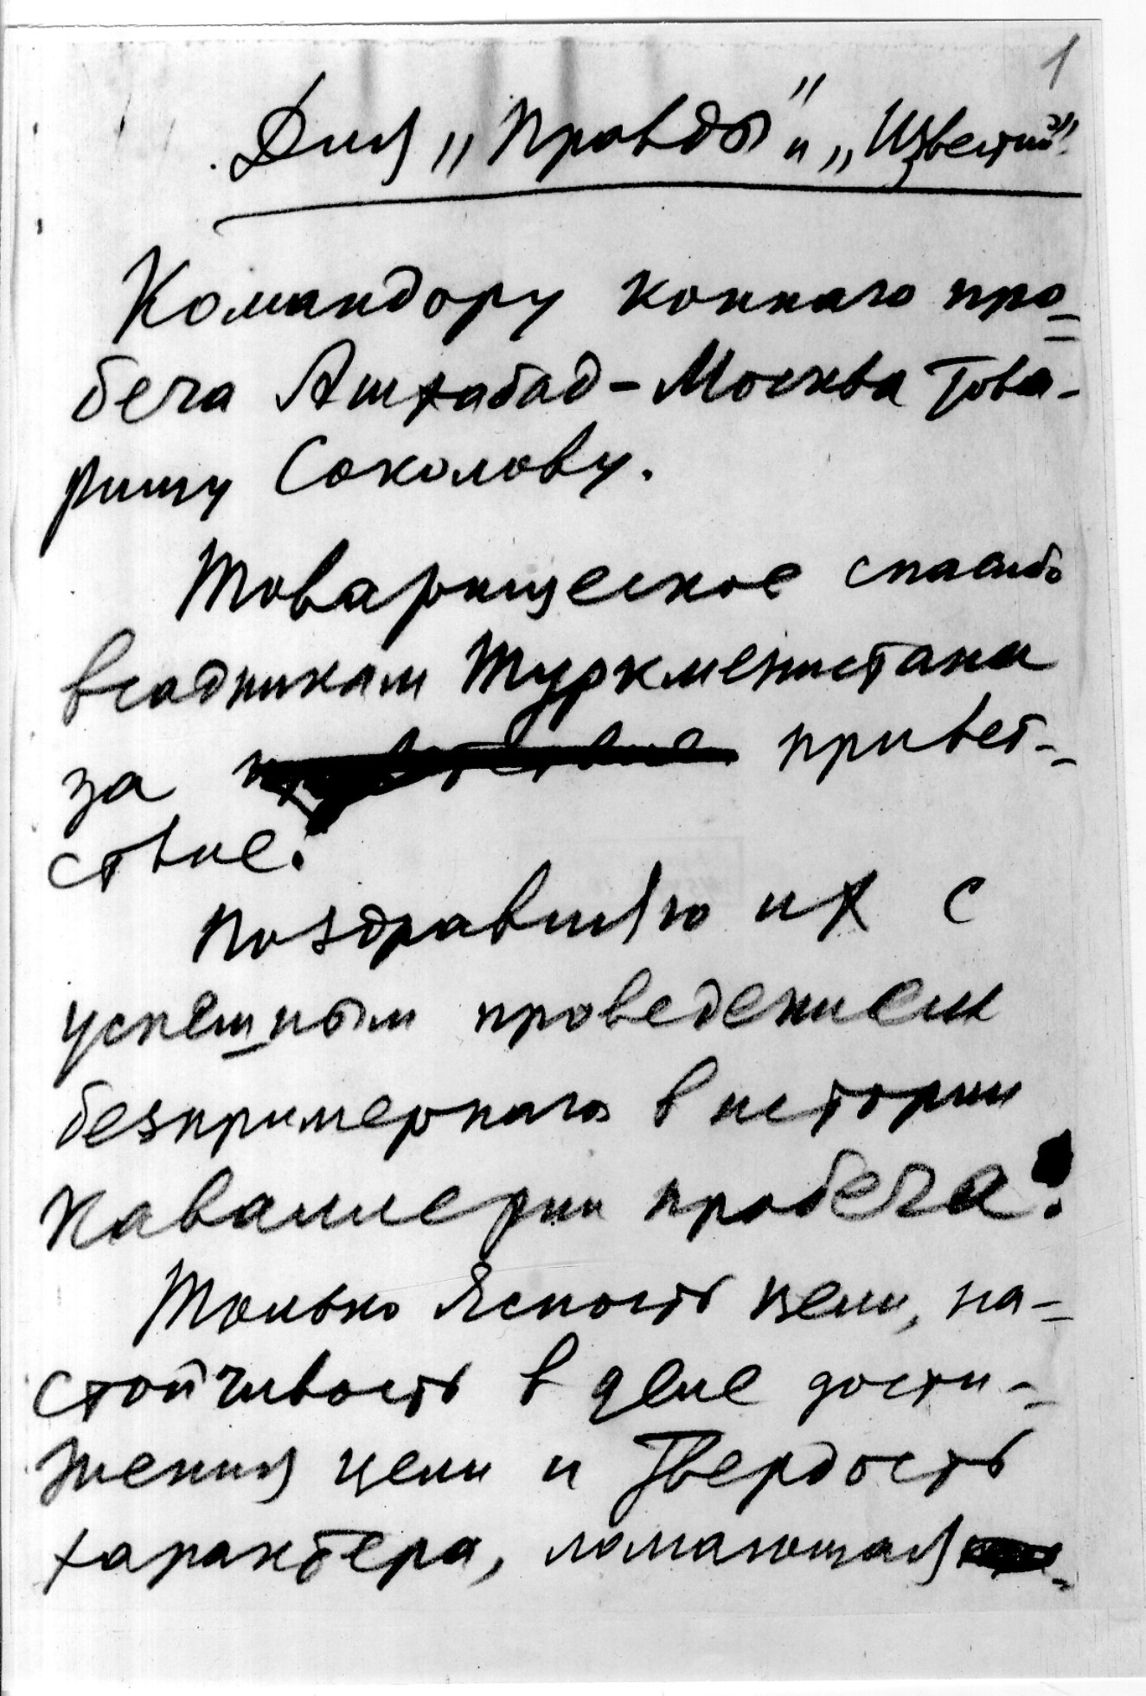 1
Для „Правды" и „Известий".
Командору коннаго про=
бега Ашхабад-Москва Това-
рищу Соколову.
Товарищеское спасибо
всадникам Туркменистана
за привет-
ствие.
Поздравляю их с
успешным проведением
безпримернаго в истории
каваллерии пробега.
Только ясность цели, на-
стойчивость в деле дости-
жения цели и твердость
характера, ломающая